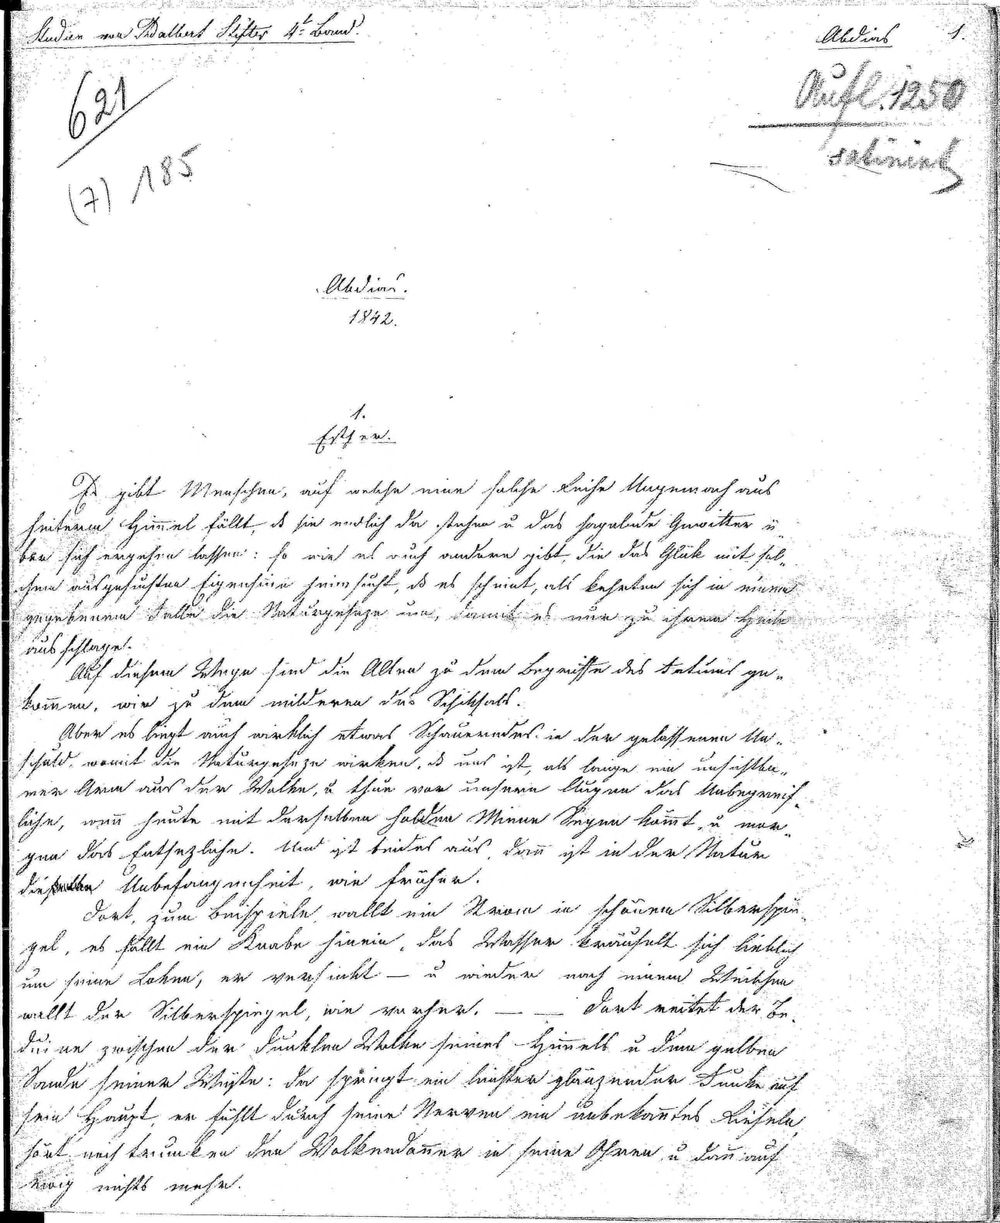 Studien von Adalbert Stifter 4t. Band.
Abdias 1.
621
Aufl. 1250
satinirt
(7) 185
Abdias.
1842.
1.
Esther.
Es gibt Menschen, auf welche eine solche Reihe Ungemach aus
heiterem Himmel fällt, dß sie endlich da stehen u das hagelnde Gewitter ü
ber sich ergehen lassen: so wie es auch andere gibt, die das Glük mit sol-
chem ausgesuchten Eigensinne heimsucht, dß es scheint, als kehrten sich in einem
gegebenem Falle die Naturgeseze um, damit es nur zu ihrem Heile
ausschlage.
Auf diesem Wege sind die Alten zu dem Begriffe des Fatums ge-
kommen, wir zu dem milderen des Schiksals.
Aber es liegt auch wirklich etwas Schauerndes in der gelassenen Un-
schuld, womit die Naturgeseze wirken, dß uns ist, als lange ein unsichtba-
rer Arm aus der Wolke, u thue vor unsern Augen das Unbegreif-
liche, wenn heute mit derselben holden Miene Segen kömmt, u mor-
gen das Entsezliche. Und ist beides aus, dann ist in der Natur
die Unbefangenheit, wie früher.
Dort, zum Beispiele, wallt ein Strom in schönem Silberspie-
gel, es fällt ein Knabe hinein, das Wasser kräuselt sich lieblich
um seine Loken, er versinkt – u wieder nach einem Weilchen
wallt der Silberspiegel, wie vorher. – – Dort reitet der Be-
duine zwischen der dunklen Wolke seines Himmels u dem gelben
Sande seiner Wüste: da springt ein leichter glänzender Funke auf
sein Haupt, er fühlt durch seine Nerven ein unbekanntes Rieseln,
hört noch trunken den Wolkendonner in seine Ohren, u dann auf
ewig nichts mehr.